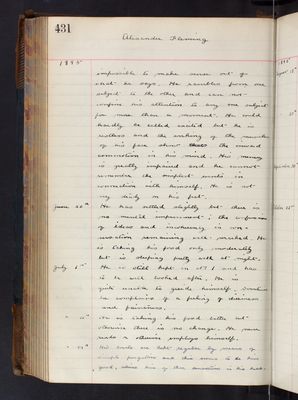 431
Alexander Fleming
1895
impossible to make sense out of
what he says. He rambles from one
subject to the other and can not
confine his attention to any one subject
for more than a moment. He could
hardly be called excited but he is
restless and the working of the muscles
of his face show the inward
commotion in his mind. His memory
is greatly impaired and he cannot
remember the simplest events in
connection with himself. He is not
very on his feet.
June 20th He has settled slightly but there is
no mental improvement; the confusion
of ideas and incoherency in con-
versation remaining well marked. He
is taking his food only moderately
but is sleeping pretty well at night.
July 1st He is still kept in and has
to be well looked after. He is
quite unable to guide himself,
he complains of a feeling of dizziness
and faintness.
" He is taking his food better but
otherwise there is no change. He never
reads or otherwise employs himself.
" His bowels are kept regular by means of
simple purgatives and this seems to do him
good,
1895